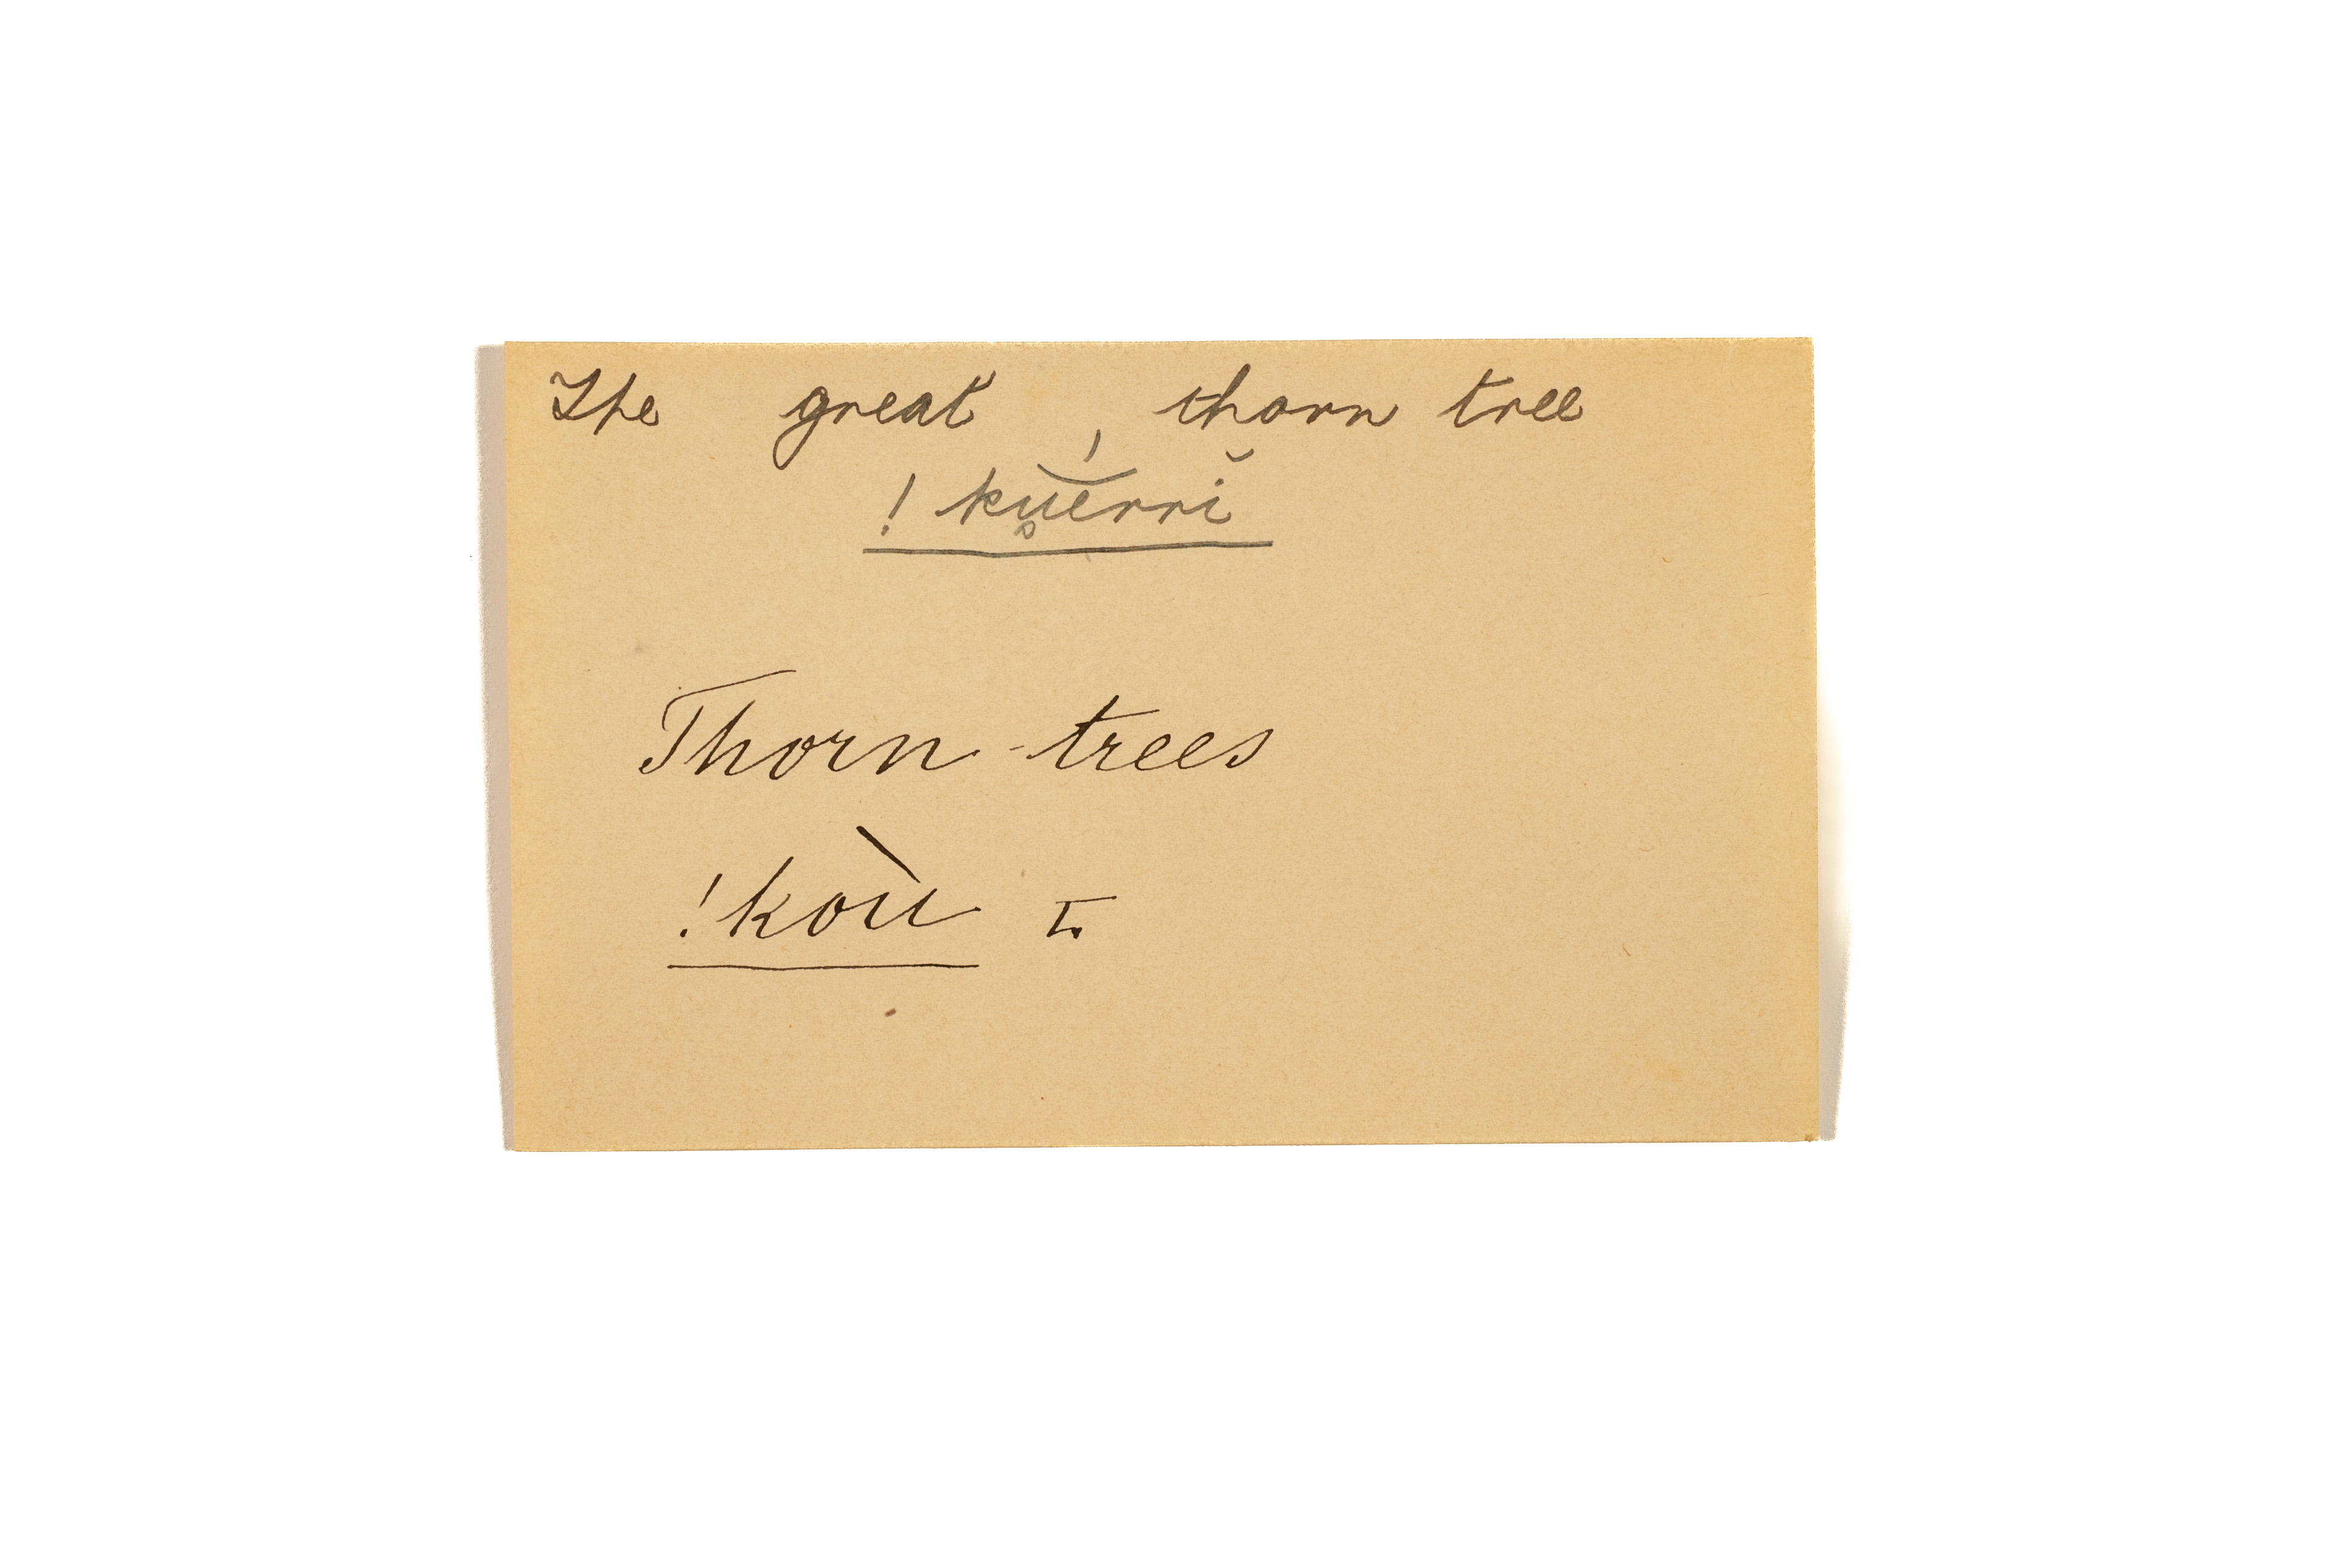 The great, thorn tree
! ku̥ĕ́rrĭ
Thorn-trees
!koù T.